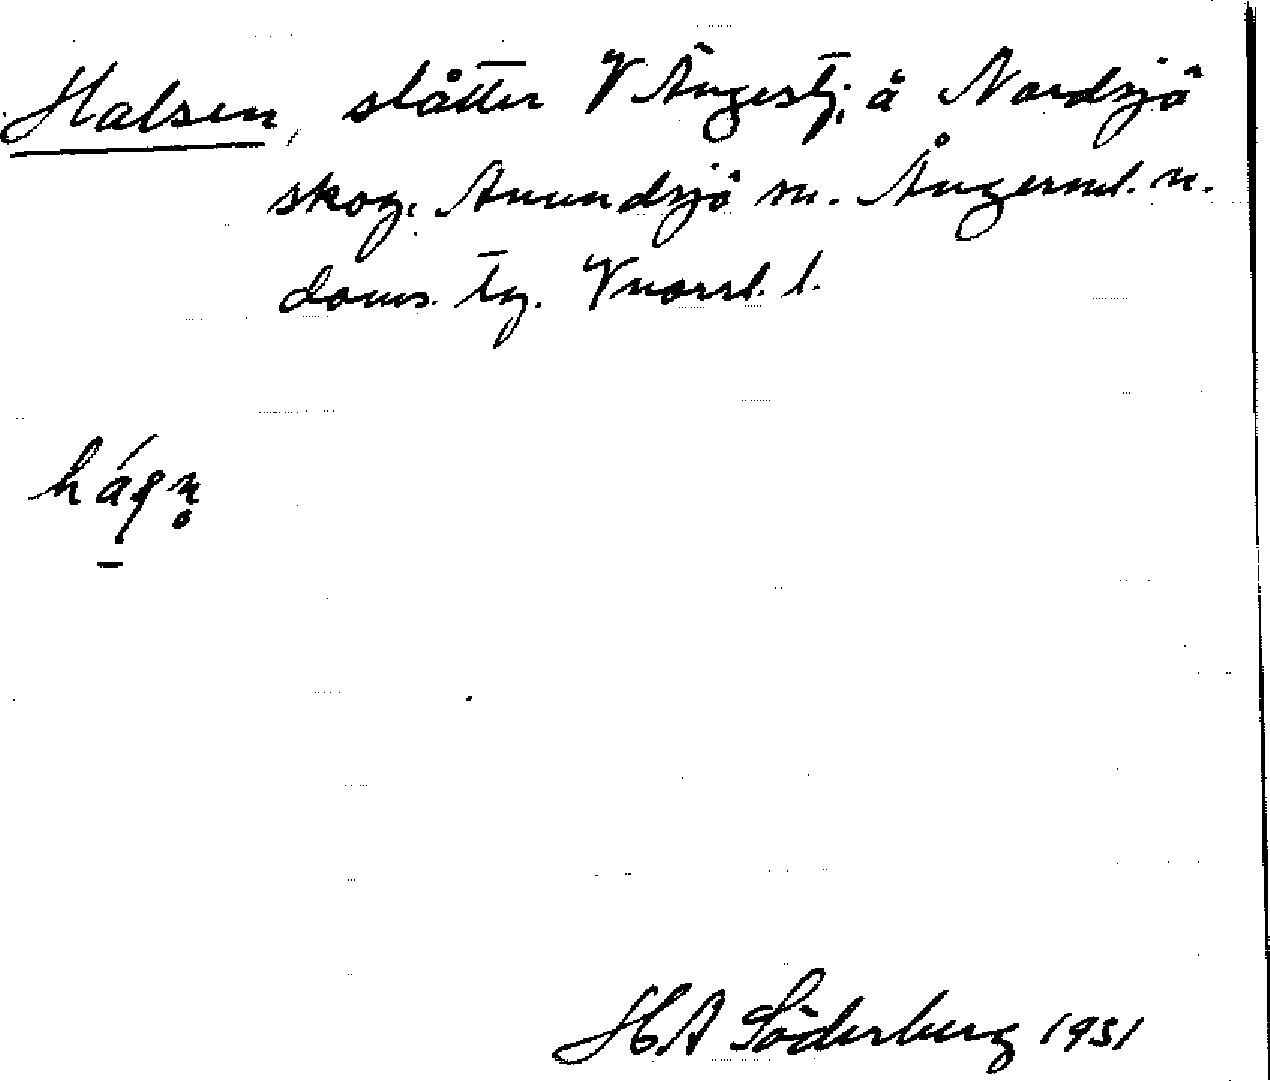 Halsen, slåtter V Ängestj. å Nordsjö
skog. Anundsjö sn. Ångerml. n.
doms. tg. Vnorrl. l.
H A Söderberg 1931